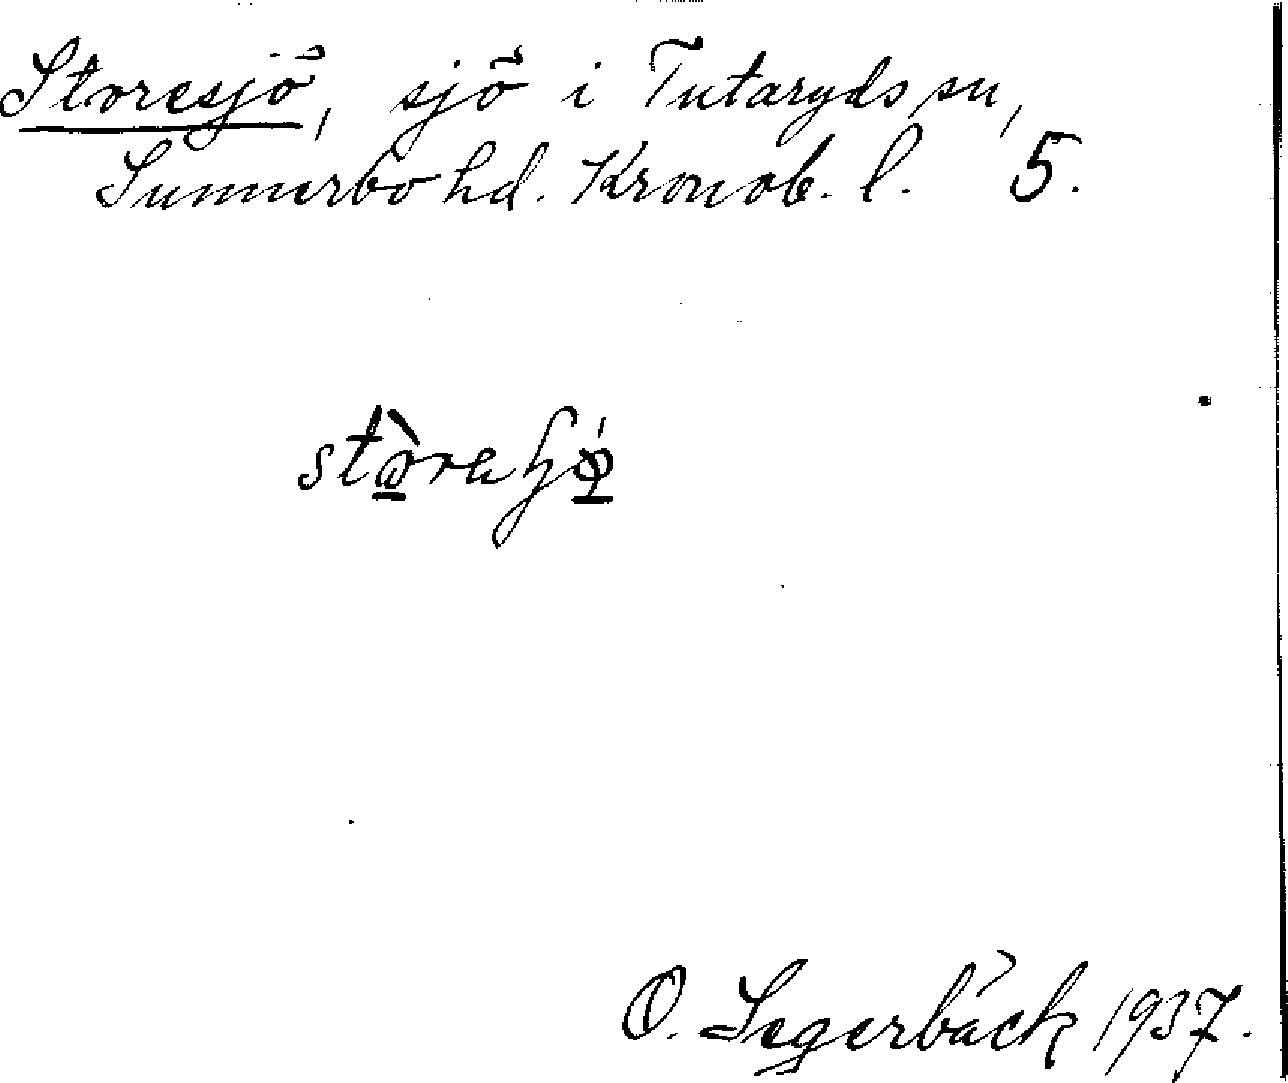 Storesjö, sjö i Tutaryds sn,
Sunnerbo hd. Kronob. l. 5.
O. Segerbäck 1937.